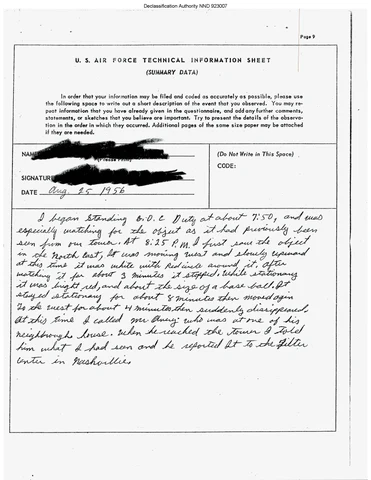 Declassification Authority NND 923007
Page 9
U. S. AIR FORCE TECHNICAL INFORMATION SHEET
(SUMMARY DATA)
In order that your information may be filed and coded as accurately as possible, please use
the following space to write out a short description of the event that you observed. You may re-
peat information that you have already given in the questionnaire, and add any further comments,
statements, or sketches that you believe are important. Try to present the details of the observa-
tion in the order in which they occurred. Additional pages of the same size paper may be attached
if they are needed.
NAME
(Please Print)
SIGNATURE
DATE Aug. 25 1956
(Do Not Write in This Space)
CODE:
I began standing G.O.C Duty at about 7:50, and was
especially watching for the object as it had previously been
seen from our tower. At 8:25 P.M. I first saw the object
in the North East, It was moving west and slowly upward
at this time it was white with red circle around it. After
watching it for about 3 minutes it stopped. While stationary
it was bright red, and about the size of a base ball. It
stayed stationary for about 8 minutes then moved again
To the west for about 4 minutes then suddenly disappeared.
At this time I called mr who was at one of his
neighboring house. When he reached the tower I told
him what I had seen and he reported It to the filter
center in Nashville